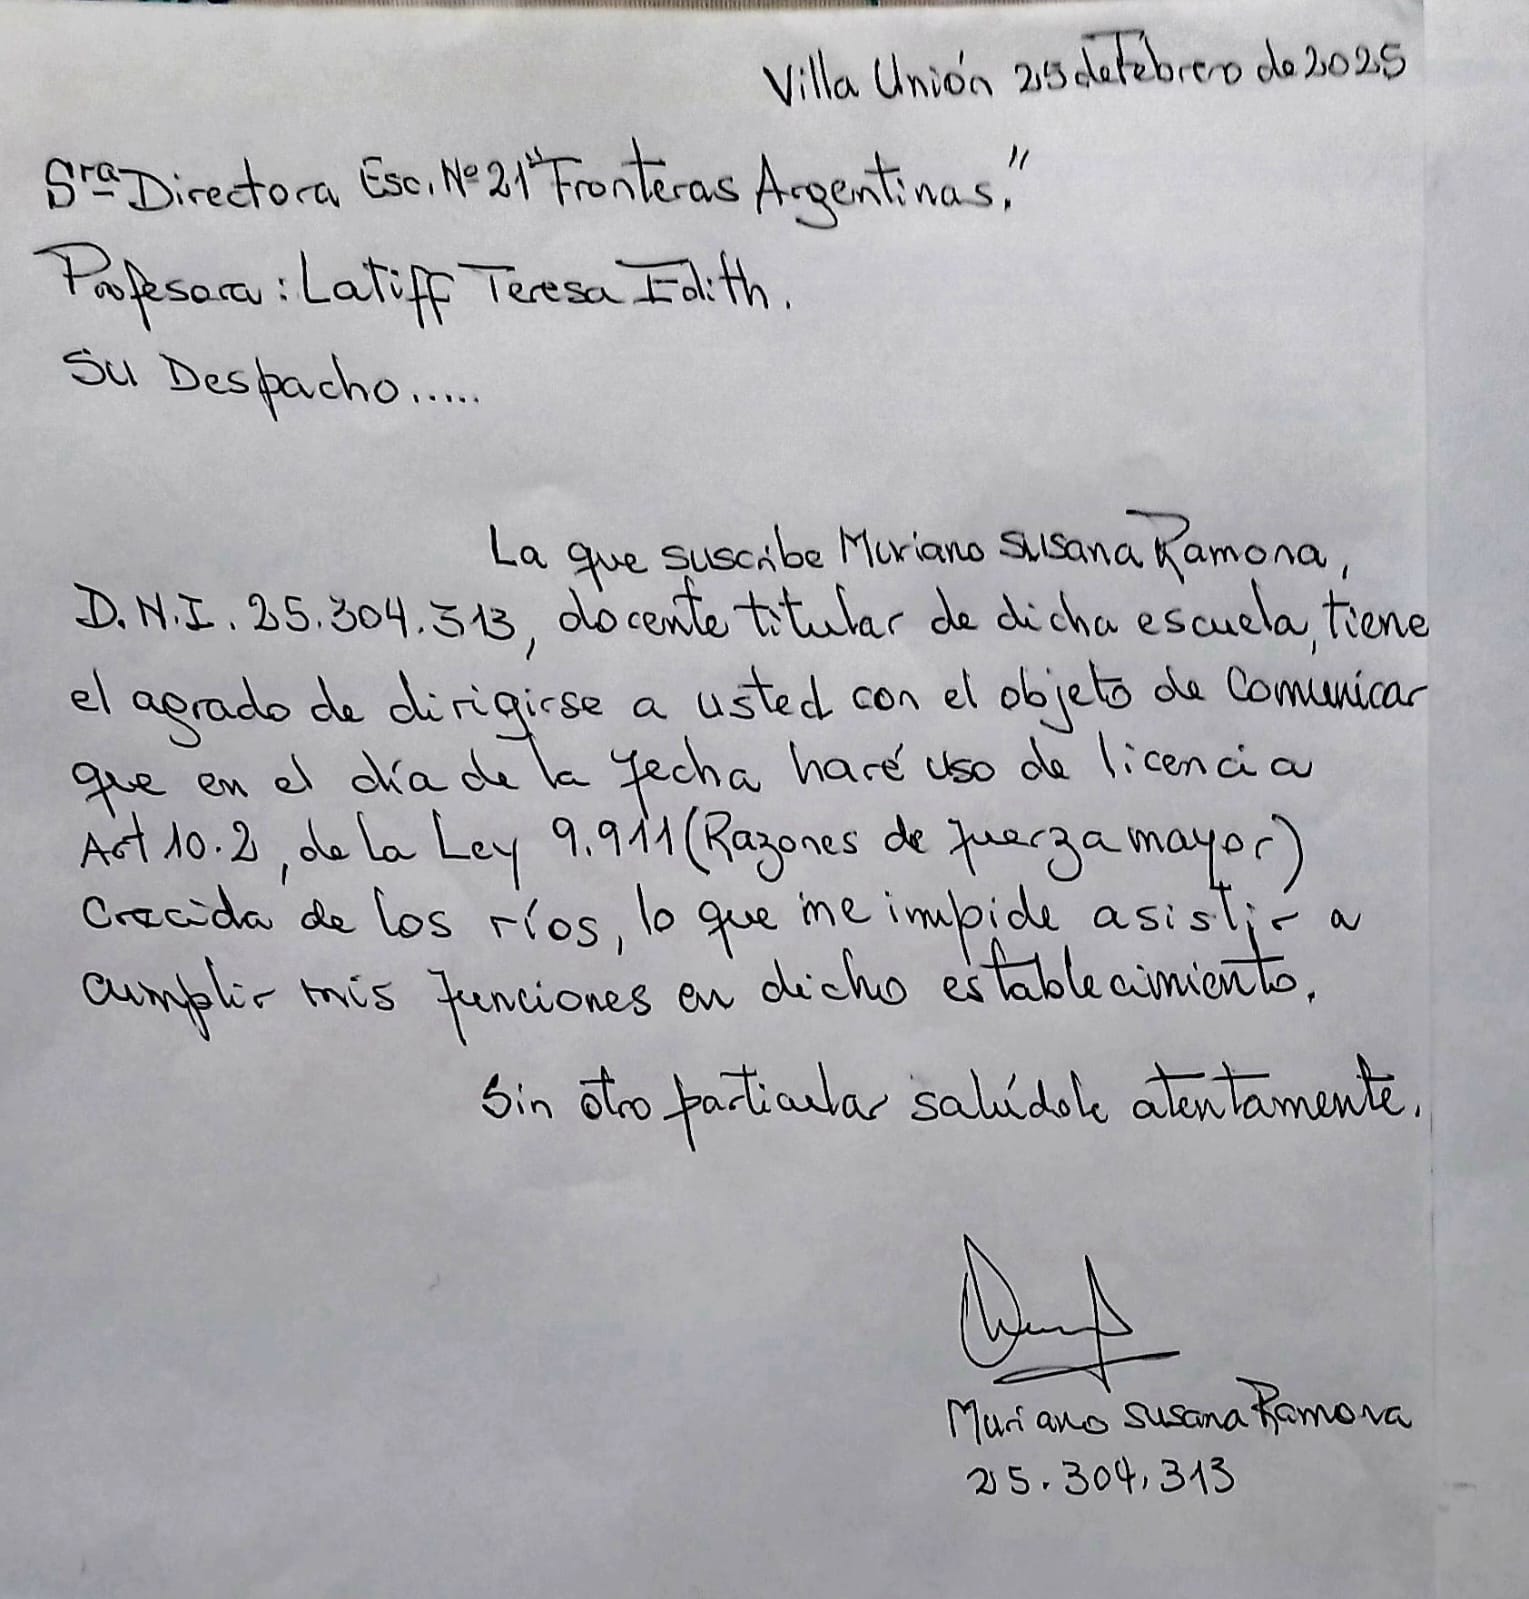 Villa Unión 25 de Febrero de 2025
Sra Directora Esc. Nº 21 "Fronteras Argentinas."
Profesora: Latiff Teresa Edith.
Su Despacho.....
La que suscribe Muriano Susana Ramona,
D.N.I. 25.304.313, docente titular de dicha escuela, tiene
el agrado de dirigirse a usted con el objeto de Comunicar
que en el día de la fecha haré uso de licencia
Art 10.2, de la Ley 9.911 (Razones de fuerza mayor)
Crecida de los ríos, lo que me impide asistir a
cumplir mis funciones en dicho establecimiento.
Sin otro particular salúdole atentamente.
Muriano Susana Ramona
25.304.313